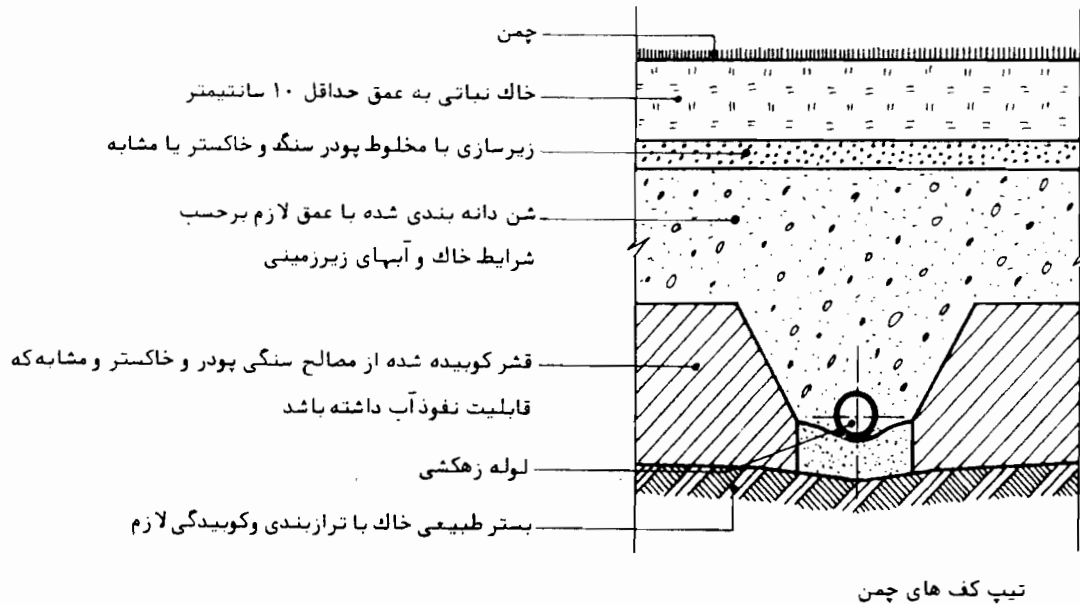 چمن
خاك نباتی به عمق حداقل ۱۰ سانتیمتر
زیرسازی با مخلوط پودر سنگ و خاکستر یا مشابه
شن دانه بندی شده با عمق لازم برحسب
شرایط خاك و آبهای زیرزمینی
قشر کوبیده شده از مصالح سنگی پودر و خاکستر و مشابه که
قابلیت نفوذ آب داشته باشد
لوله زهکشی
بستر طبیعی خاك با ترازبندی وکوبیدگی لازم
تیپ کف های چمن